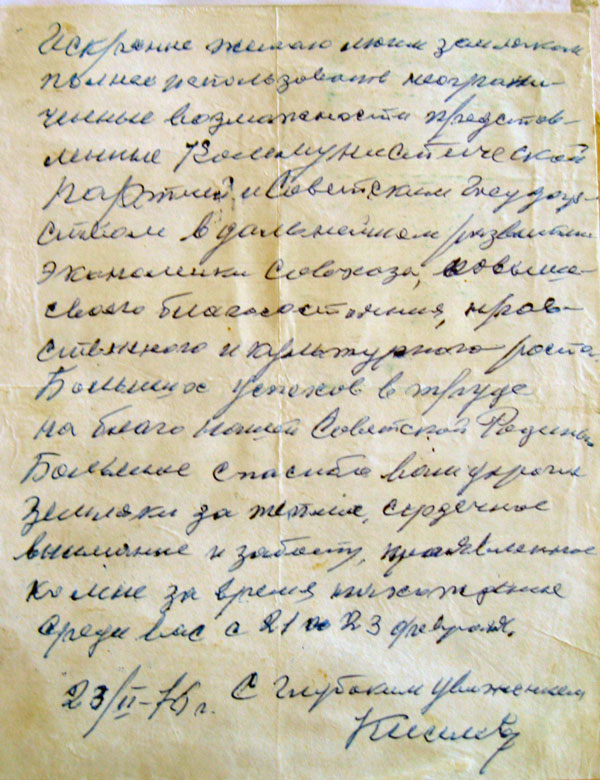 Искренне желаю моим землякам
полнее использовать неограни-
ченные возможности предстов-
ленные Коммунистической
партией и Советским Государ-
ством в дальнейшем развитии
экономики совхоза, повыше
своего благосостояния, нрав-
ственного и культурного роста.
Больших успехов в труде
на благо нашей Советской Родины
Большое спасибо вам дорогие
земляки за теплое, сердечное
внимание и заботу, проявленное
ко мне за время нахождение
среди вас с 21 по 23 февраля.
23/II-76 г. С глубоким уважением